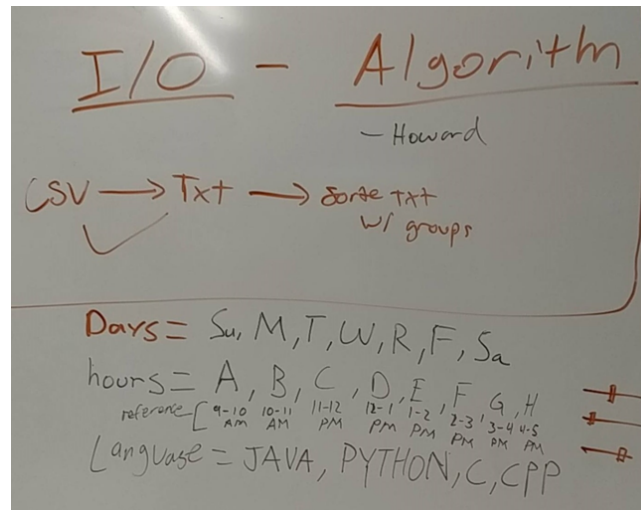 I/O - Algorithm
- Howard
CSV → Txt → Sorte txt
w/ groups
Days = Su, M, T, W, R, F, Sa
hours = A, B, C, D, E, F, G, H
reference [ 9-10 AM 10-11 AM 11-12 PM 12-1 PM 1-2 PM 2-3 PM 3-4 PM 4-5 PM
Language = JAVA, PYTHON, C, CPP